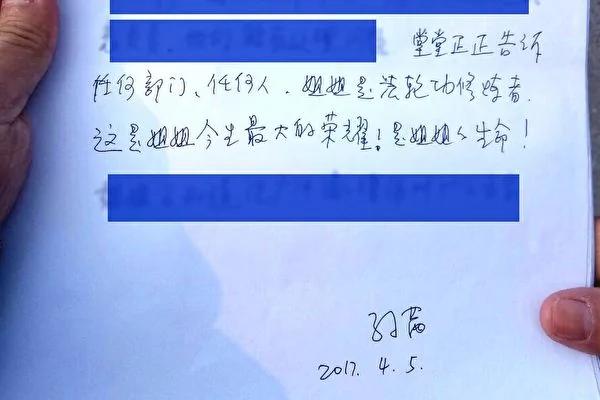 堂堂正正告诉
任何部门、任何人，姐姐是法轮功修炼者，
这是姐姐今生最大的荣耀！是姐姐的生命！
2017. 4. 5.